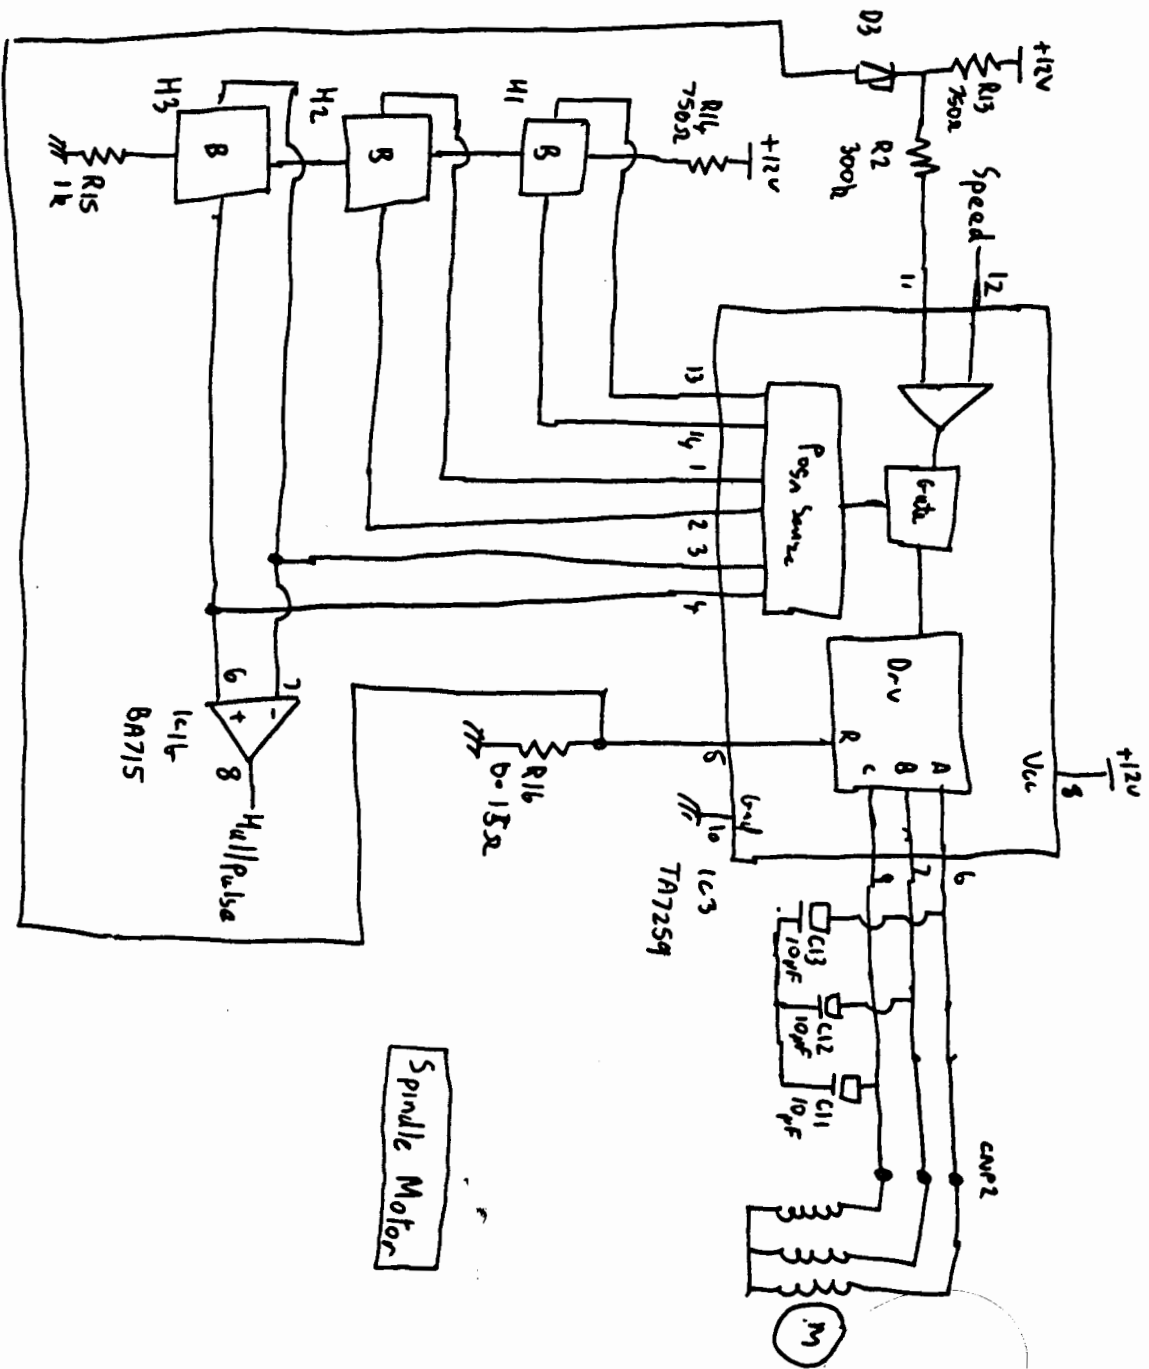 +12V
R13
750Ω
D3
R2
300k
Speed
11
12
+12V
R14
750Ω
H1
B
H2
B
H3
B
R15
1k
13
14
1
2
3
4
Posn Sense
Gate
Drv
R
A
B
C
Vcc
8
+12V
5
Gnd
10
IC3
TA7259
6
7
9
R16
0.15Ω
7
6
-
+
8
IC1b
BA715
Hall/Pulse
C13
10µF
C12
10µF
C11
10µF
CNP2
M
Spindle Motor